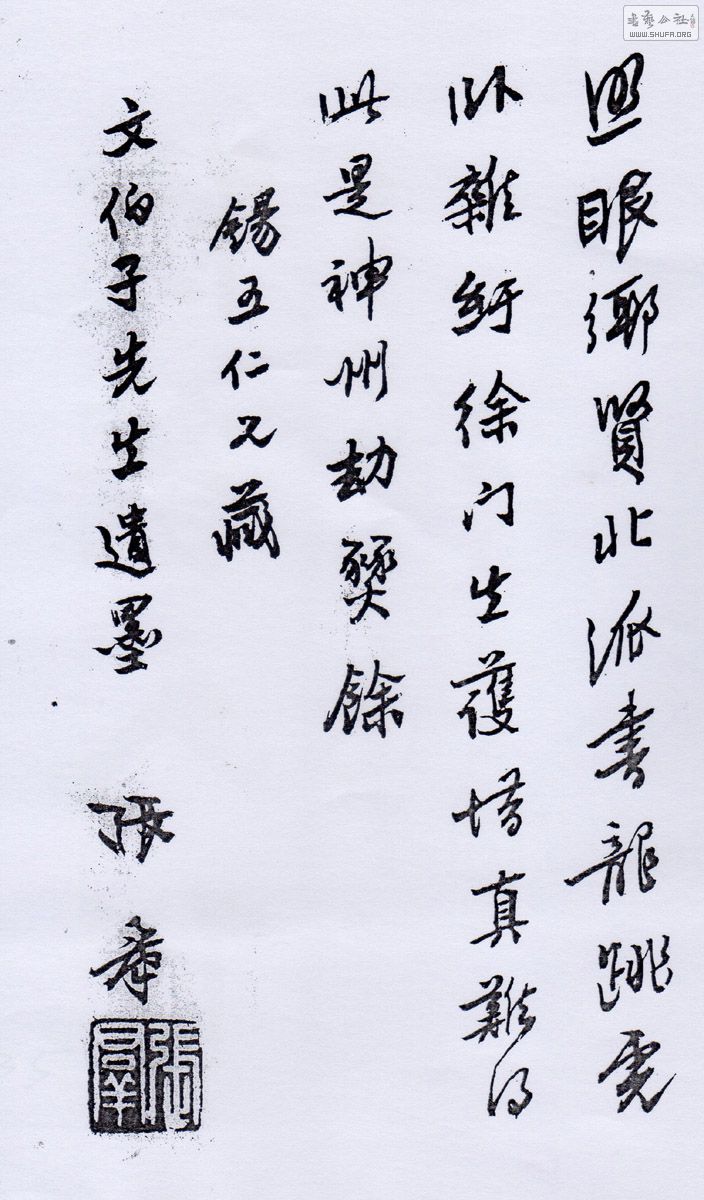 書藝公社
WWW.SHUFA.ORG
照眼鄉賢北派書龍跳虎
卧雜紆徐门生護惜真難得
此是神州劫燹餘
錫五仁兄藏
文伯子先生遺墨 張羣
張羣